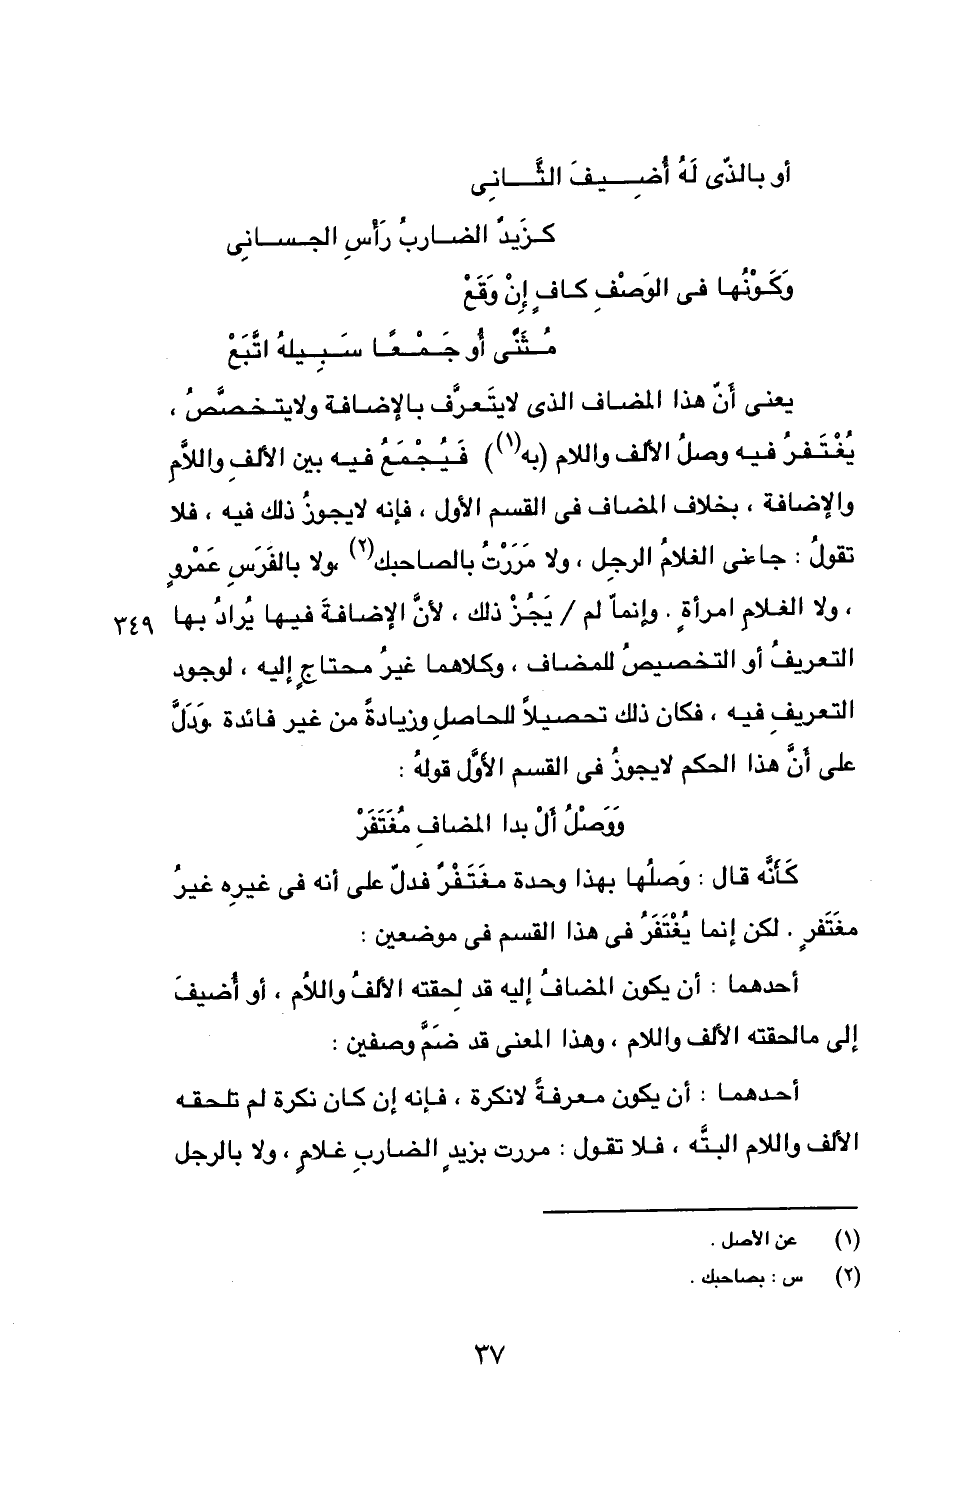 أو بالذّى لَهُ أُضِـيفَ الثَّـانِى
كـزَيدٌ الضـاربُ رَأْسِ الجـسـانِى
وَكَوْنُها فى الوَصْفِ كافٍ إنْ وَقَعْ
مُـثَنَّى أو جَـمْـعًـا سَـبِـيلهُ اتَّبَعْ
يعنى أَنّ هذا المضاف الذى لايتَعرَّف بالإضافة ولايتخصَّصُ ،
يُغْتَفرُ فيه وصلُ الألف واللام (به(١)) فَيُجْمَعُ فيه بين الألفِ واللاَّم
والإضافة ، بخلاف المضاف فى القسم الأول ، فإنه لايجوزُ ذلك فيه ، فلا
تقولُ : جاءنى الغلامُ الرجلِ ، ولا مَرَرْتُ بالصاحبك(٢) ،ولا بالفَرَسِ عَمْروٍ
، ولا الغلامِ امرأةٍ . وإنماّ لم / يَجُزْ ذلك ، لأنَّ الإضافةَ فيها يُرادُ بها ٣٤٩
التعريفُ أو التخصيصُ للمضاف ، وكلاهما غيرُ محتاجٍ إليه ، لوجود
التعريفِ فيه ، فكان ذلك تحصيلاً للحاصلِ وزيادةً من غير فائدة .وَدَلَّ
على أَنَّ هذا الحكم لايجوزُ فى القسم الأوَّل قولهُ :
وَوَصْلُ أَلْ بذا المضافِ مُغْتَفَرْ
كَأَنَّه قال : وَصلُها بهذا وحدة مغَتَفْرٌ فدلّ على أنه فى غيرِه غيرُ
مغَتَفرٍ . لكن إنما يُغْتَفَرُ فى هذا القسم فى موضعين :
أحدهما : أن يكون المضافُ إليه قد لحقته الألفُ واللاُم ، أو أُضيفَ
إلى مالحقته الألف واللام ، وهذا المعنى قد ضَمَّ وصفين :
أحدهما : أن يكون معرفةً لانكرة ، فإنه إن كان نكرة لم تلحقه
الألف واللام البتَّه ، فلا تقول : مررت بزيدٍ الضاربِ غلامٍ ، ولا بالرجل
(١) عن الأصل .
(٢) س : بصاحبك .
٣٧